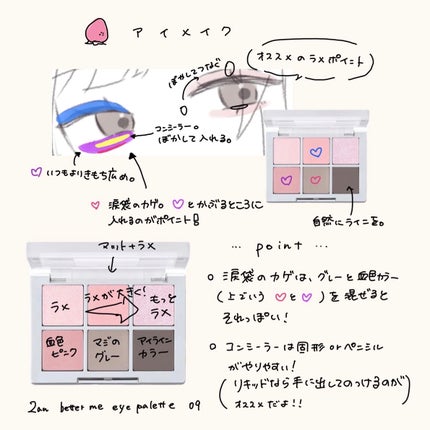 アイメイク
ぼかしてつなぐ
オススメのラメポイント
コンシーラー。
ぼかして入れる。
♡ いつもよりきもち広め。
♡ 涙袋のカゲ。♡とかぶるところに
入れるのがポイント!!
自然にラインを。
マット+ラメ
ラメ
ラメが大きく!
もっと
ラメ
血色
ピンク
マジの
グレー
アイライン
カラー
2an better me eye palette 09
… point …
○ 涙袋のカゲは、グレーと血色カラー
(上でいう ♡と♡)を混ぜると
それっぽい!
○ コンシーラーは固形 or ペンシル
がやりやすい!
(リキッドなら手に出してのっけるのが
オススメだよ!!)